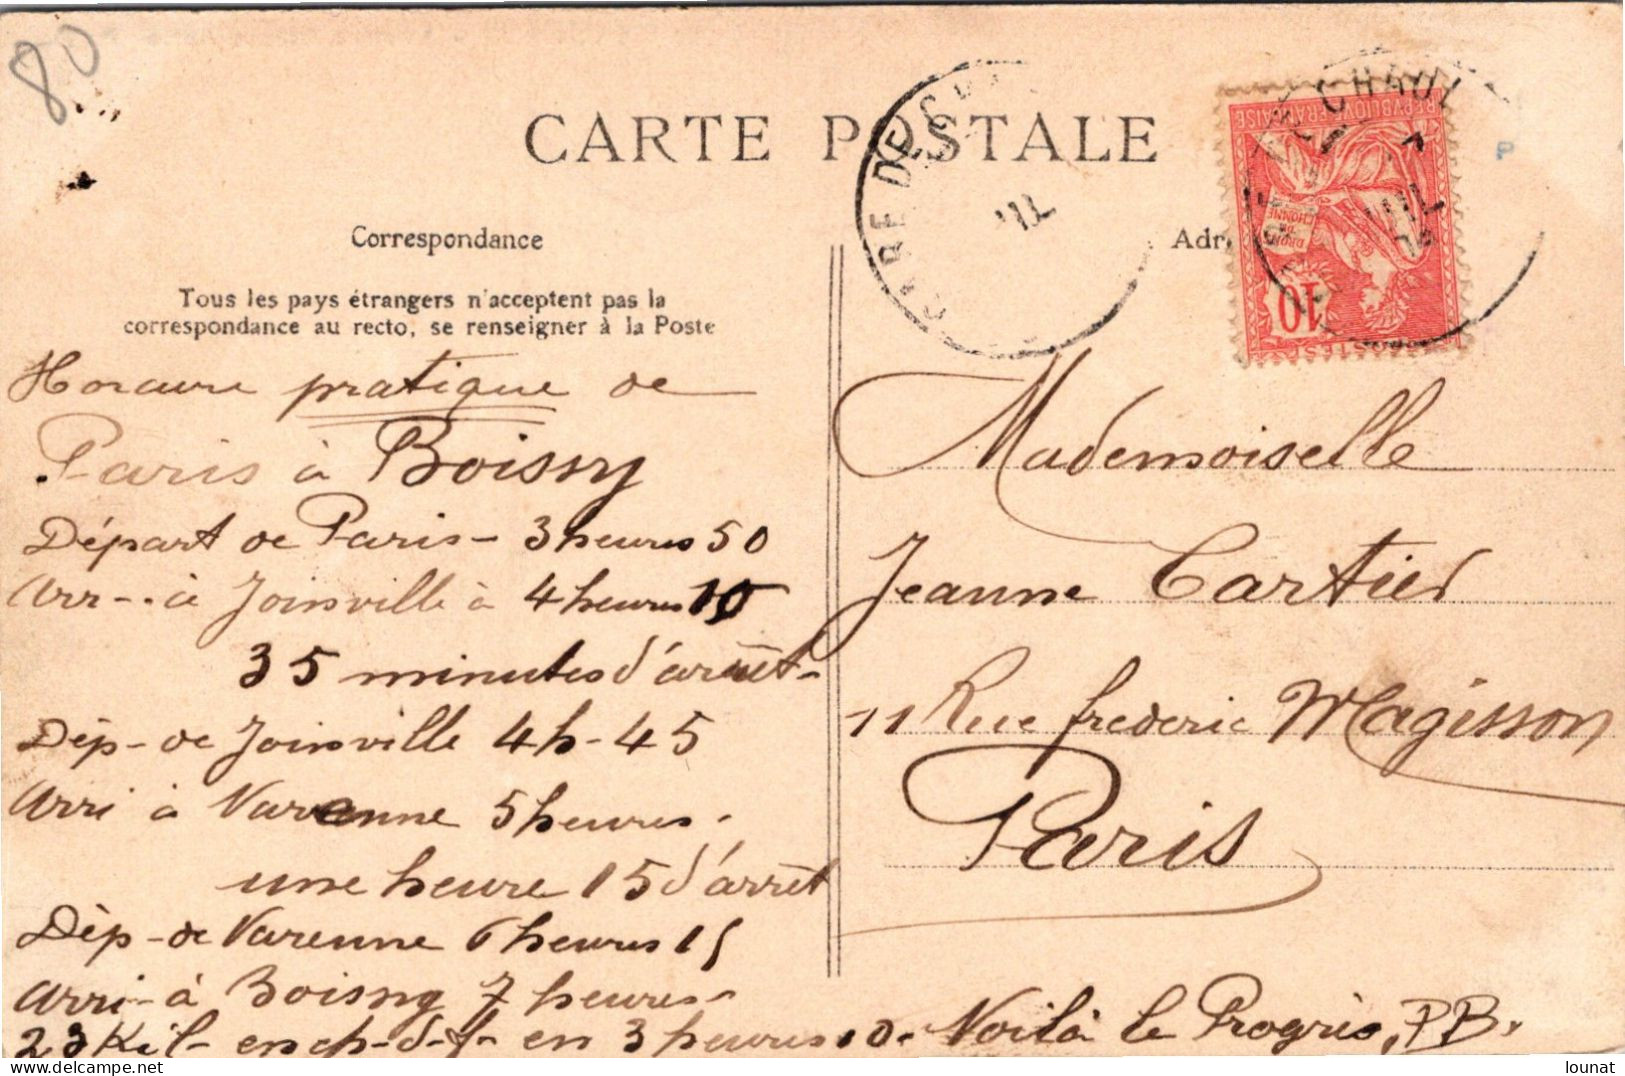 80
CARTE POSTALE
Correspondance
Tous les pays étrangers n'acceptent pas la
correspondance au recto, se renseigner à la Poste
Horaire pratique de
Paris à Boissy
Départ de Paris - 3 heures 50
Arr - à Joinville à 4 heures 10
35 minutes d'arrêt -
Dép - de Joinville 4 h - 45
Arri à Varenne 5 heures -
une heure 15 d'arrêt
Dép - de Varenne 6 heures 15
Arri - à Boissy 7 heures -
23 Kil - en ch - d - f - en 3 heures 10 - Voilà le Progrès, PB.
REPVBLIQVE FRANÇAISE
DROITS DE L'HOMME
10
POSTES
Mademoiselle
Jeanne Cartier
11 Rue frederic Magisson
Paris
lounat